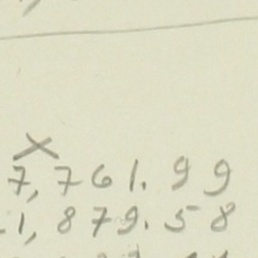 ×
7,761.99
1,879.58